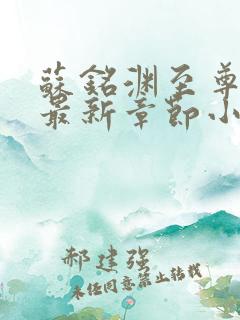 蘇銘渊至尊
最新章節小
郝建强
未经同意禁止转载